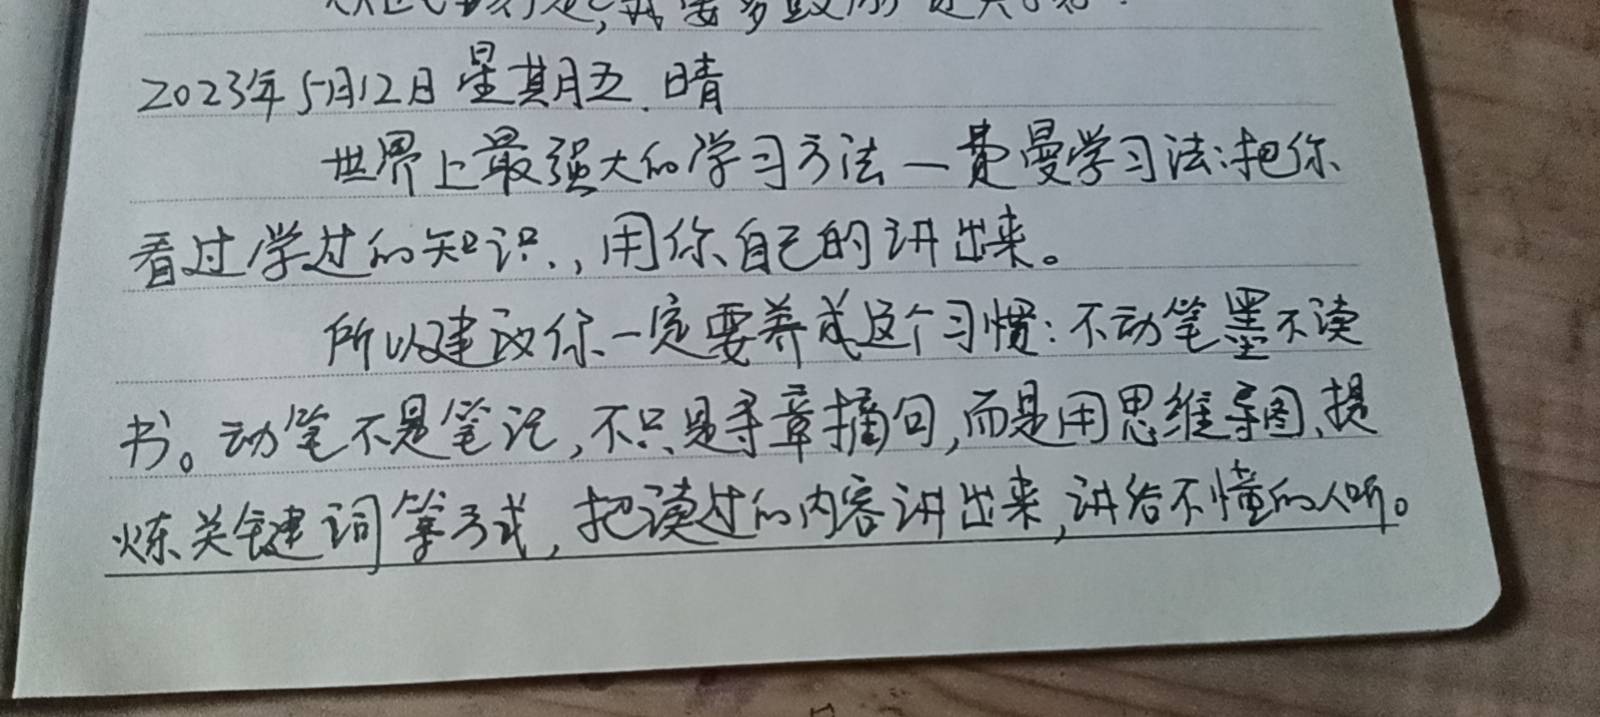 我要多鼓励
2023年5月12日 星期五.晴
世界上最强大的学习方法—费曼学习法:把你
看过学过的知识,用你自己的讲出来。
所以建议你一定要养成这个习惯:不动笔墨不读
书。动笔不是笔记,不只是寻章摘句,而是用思维导图、提
炼关键词等方式,把读过的内容讲出来,讲给不懂的人听。